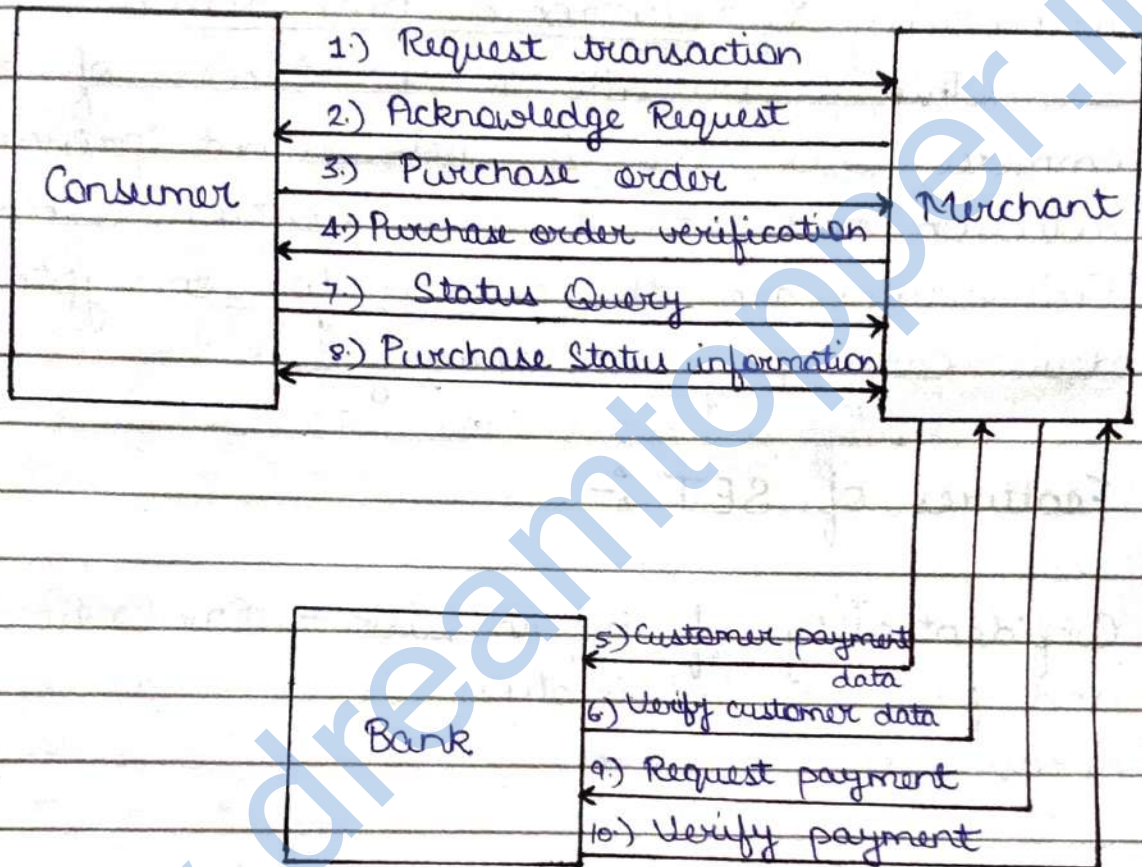 1.) Request transaction
2.) Acknowledge Request
3.) Purchase order
Consumer
Merchant
4.) Purchase order verification
7.) Status Query
8.) Purchase Status information
5) Customer payment
data
6) Verify customer data
Bank
9.) Request payment
10.) Verify payment
dreamtopper.in